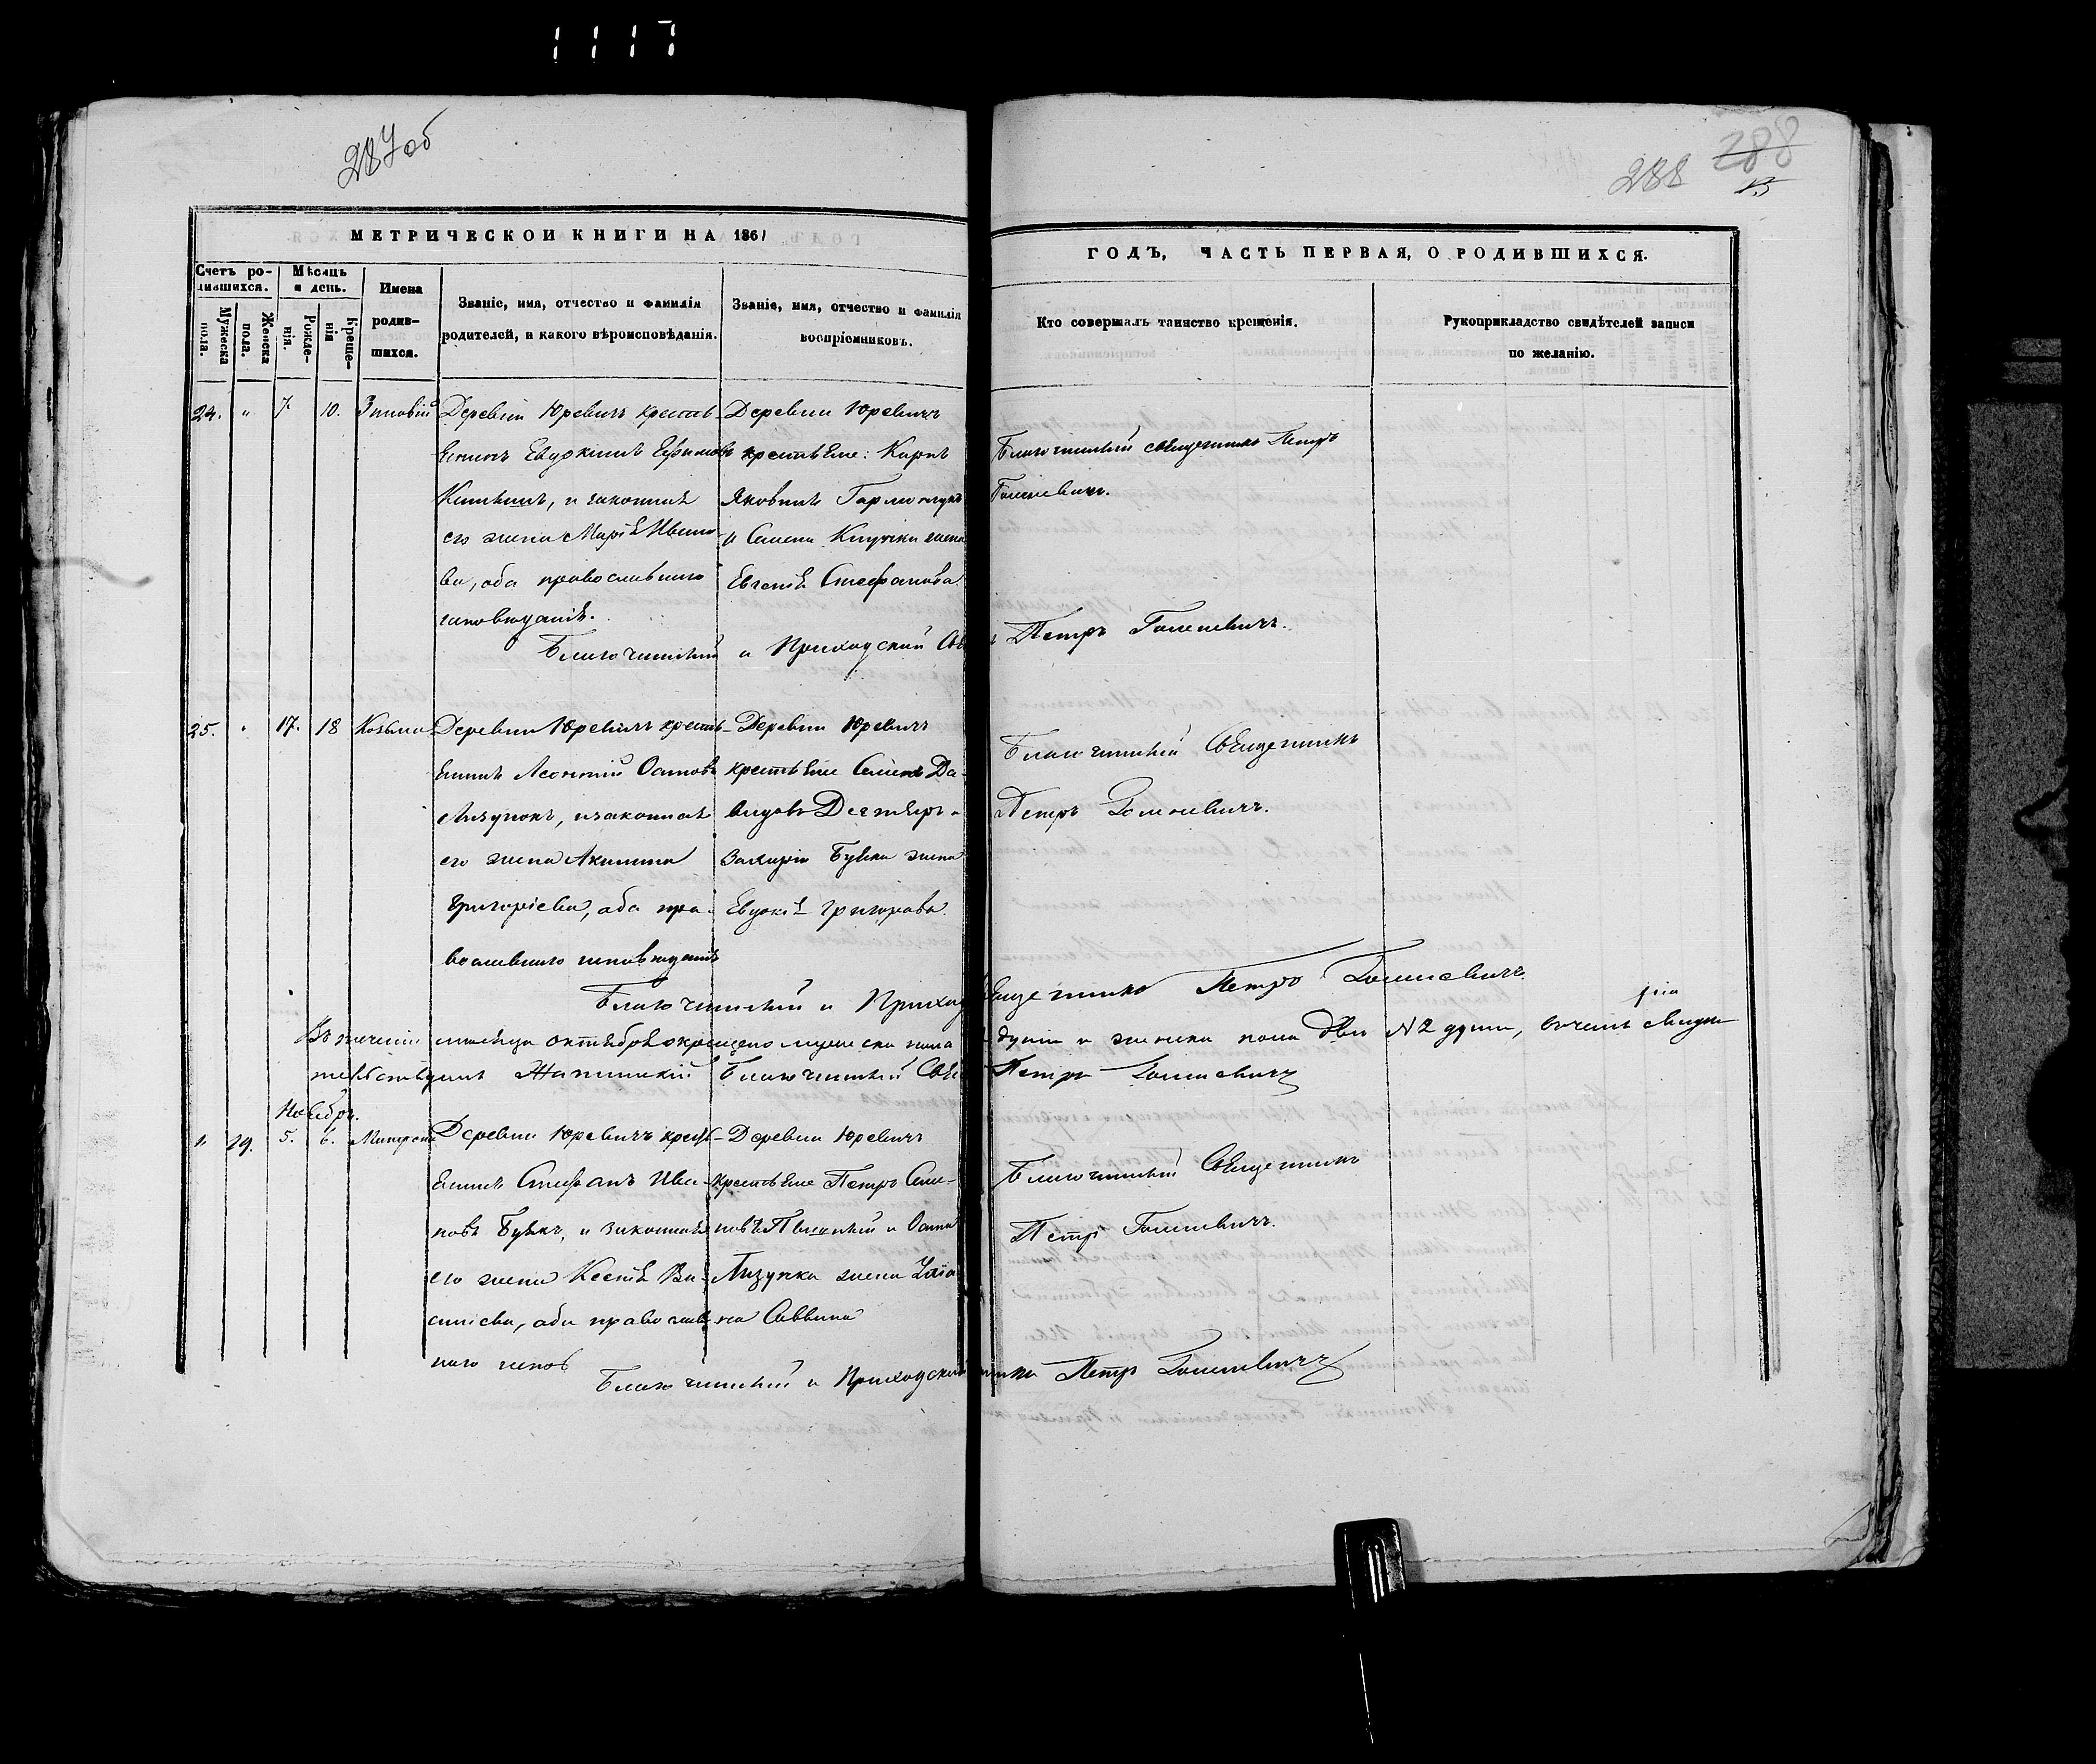 1117
287 об
288 288
МЕТРИЧЕСКОИ КНИГИ НА 1861
ГОДЪ, ЧАСТЬ ПЕРВАЯ, О РОДИВШИХСЯ.
Счетъ ро-
дившихся.
Мужеска
пола.
Женска
пола.
Мѣсяцъ
и день.
Рожде-
нія.
Креще-
нія
Имена
родив-
шихся.
Званіе, имя, отчество и фамилія
родителей, и какого вѣроисповѣданія.
Званіе, имя, отчество и фамилія
воспріемниковъ.
Кто совершалъ таинство крещенія.
Рукоприкладство свидѣтелей записи
по желанію.
24. " 7. 10. Зиновій
Деревни Юревичъ крестъ-
янинъ Евдокимъ Ефимовъ
и законная
его жена Марія Ивано-
ва, оба православнаго
исповѣданія.
Деревни Юревичъ
крестьяне: Карпъ
Яковлевъ
и Семена жена
Евгенія Стефанова
Благочинный священникъ Петръ
Благочинный и Приходскій Петръ
25. " 17. 18 Козьма
Деревни Юревичъ кресть-
янинъ Леонтій
Лизунокъ, и законная
его жена Акилина
Григоріева, оба пра-
вославнаго исповѣданія
Деревни Юревичъ
крестьяне Семенъ Да-
видовъ Дегтяръ и
Захарія Буяка жена
Евдокія Григорьева.
Благочинный Священникъ
Петръ
Благочинный и Приход Священникъ Петръ
Въ теченіи мѣсяца октября окрещено мужеска пола души и женска пола двѣ № 2 души, въ чемъ свидѣ-
тельствуемъ Благочинный Петръ
Ноябрь.
" 19. 5. 6.
Деревни Юревичъ кресть-
янинъ Стефанъ Ива-
новъ Буякъ, и законная
его жена Ксенія Ва-
силіева, оба православ-
наго испов
Деревни Юревичъ
крестьяне Петръ Семе-
новъ и
Лизунка жена Улія-
на Саввина
Благочинный Священникъ
Петръ
Благочинный и Приходскій Петръ